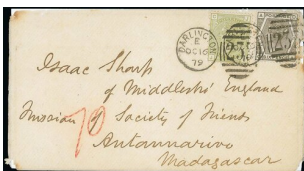 DARLINGTON
E
OC 16
79
Isaac Sharp
of Middlesbro' England
Mission of Society of Friends
Antannarivo
Madagascar